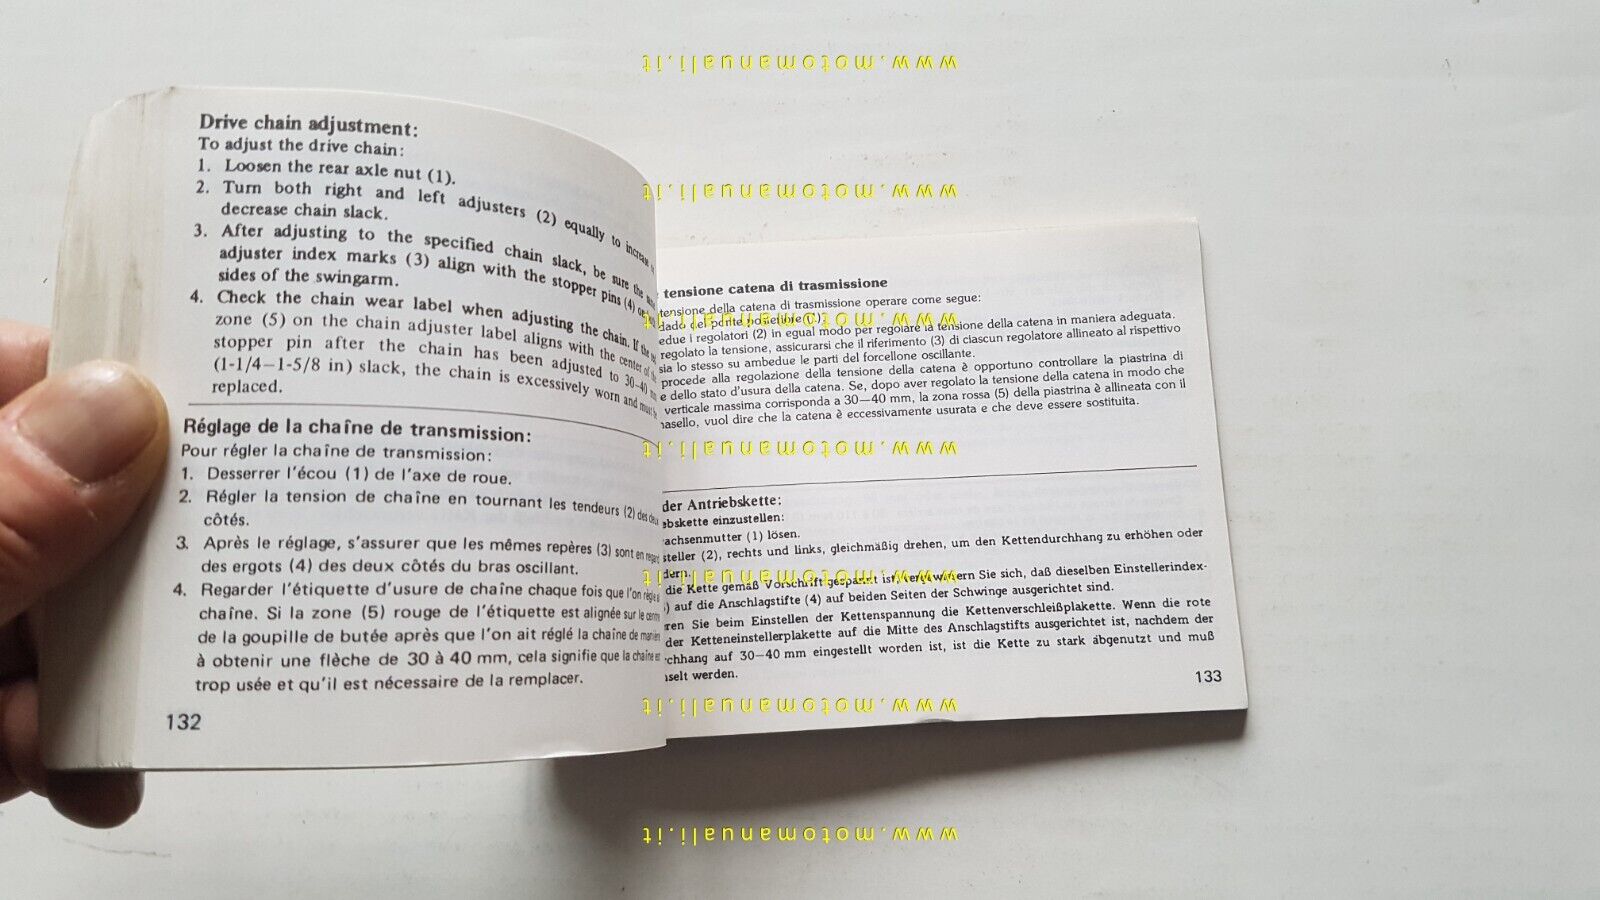 Drive chain adjustment:
To adjust the drive chain:
1. Loosen the rear axle nut (1).
2. Turn both right and left adjusters (2) equally to increase or
decrease chain slack.
3. After adjusting to the specified chain slack, be sure the same
adjuster index marks (3) align with the stopper pins (4) on
sides of the swingarm.
4. Check the chain wear label when adjusting the chain. If the red
zone (5) on the chain adjuster label aligns with the center of the
stopper pin after the chain has been adjusted to 30-40 mm
(1-1/4—1-5/8 in) slack, the chain is excessively worn and must be
replaced.
Réglage de la chaîne de transmission:
Pour régler la chaîne de transmission:
1. Desserrer l'écou (1) de l'axe de roue.
2. Régler la tension de chaîne en tournant les tendeurs (2) des deux
côtés.
3. Après le réglage, s'assurer que les mêmes repères (3) sont en regard
des ergots (4) des deux côtés du bras oscillant.
4. Regarder l'étiquette d'usure de chaîne chaque fois que l'on règle la
chaîne. Si la zone (5) rouge de l'étiquette est alignée sur le centre
de la goupille de butée après que l'on ait réglé la chaîne de manière
à obtenir une flèche de 30 à 40 mm, cela signifie que la chaîne est
trop usée et qu'il est nécessaire de la remplacer.
132
tensione catena di trasmissione
tensione della catena di trasmissione operare come segue:
dado del ponte posteriore (1).
edue i regolatori (2) in egual modo per regolare la tensione della catena in maniera adeguata.
regolato la tensione, assicurarsi che il riferimento (3) di ciascun regolatore allineato al rispettivo
sia lo stesso su ambedue le parti del forcellone oscillante.
procede alla regolazione della tensione della catena è opportuno controllare la piastrina di
e dello stato d'usura della catena. Se, dopo aver regolato la tensione della catena in modo che
verticale massima corrisponda a 30—40 mm, la zona rossa (5) della piastrina è allineata con il
nasello, vuol dire che la catena è eccessivamente usurata e che deve essere sostituita.
der Antriebskette:
ebskette einzustellen:
rachsenmutter (1) lösen.
steller (2), rechts und links, gleichmäßig drehen, um den Kettendurchhang zu erhöhen oder
dern.
die Kette gemäß Vorschrift gespannt ist, vergewissern Sie sich, daß dieselben Einstellerindex-
) auf die Anschlagstifte (4) auf beiden Seiten der Schwinge ausgerichtet sind.
ren Sie beim Einstellen der Kettenspannung die Kettenverschleißplakette. Wenn die rote
der Ketteneinstellerplakette auf die Mitte des Anschlagstifts ausgerichtet ist, nachdem der
rchhang auf 30—40 mm eingestellt worden ist, ist die Kette zu stark abgenutzt und muß
hselt werden.
133
www.motomanuali.it
www.motomanuali.it
www.motomanuali.it
www.motomanuali.it
www.motomanuali.it
www.motomanuali.it
www.motomanuali.it